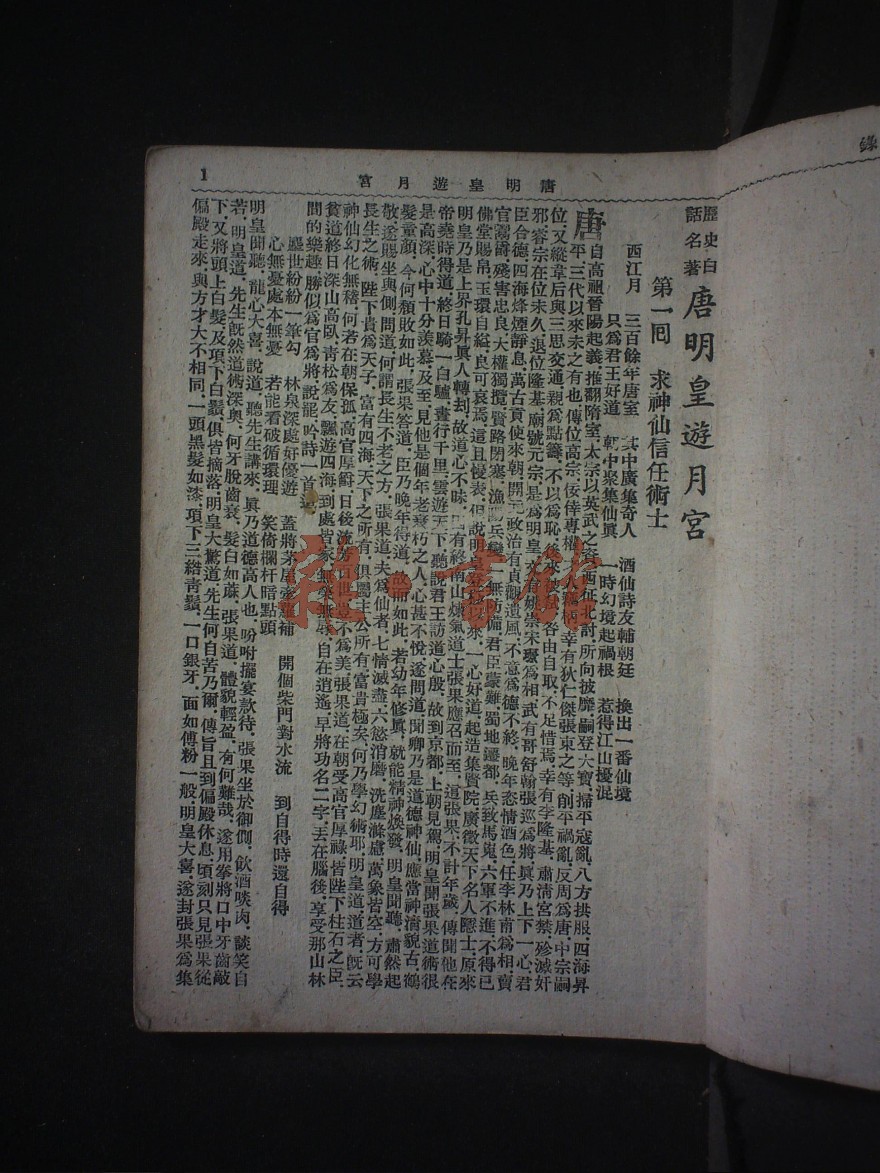 錄
歷史白
話名著
唐明皇遊月宮
第一回　求神仙信任術士
西江月　三百餘年唐室　其中廣集奇人　酒仙詩友輔朝廷　換出一番仙境
只爲君王好道　朝中聚集仙眞　一時幻境起禍根　惹得江山擾混
唐自高祖晉陽起義推翻隋室．太宗以英武之姿．西征北討．所向披靡．嗣登大寶．掃平寇亂．八方拱服．四海昇
平．三代以來未之有也．傳位高宗．佞倖專權．幸有狄仁傑張柬之等．削平禍亂．反周爲唐．中宗嗣
位．又縱韋后與三思交通．親爲點籌．不以爲恥．各由自取．不足惜焉．幸有李隆基．肅清宮禁．殄滅奸
邪．睿宗在位未久．退位隆基．廟號元宗．是爲明皇．文有姚崇宋璟爲相．武有哥舒翰張巡爲將．眞乃上下一心．君
臣合德．四海烽煙靜息．萬古貢使來朝．開元政治．有貞觀遺風．不意爲德不終．晚年恣情酒色．任李林甫爲相．賣
官鬻爵．殘害忠良．大權獨攬．賢路閉塞．漁陽兵變．無防備．君臣蒙難．蜀地遷都．兵致馬嵬．六軍不進．不得已
佛堂賜帛．玉環自縊．良可哀焉．這且慢表．但說明皇來．一心好道．起造集賢院．廣徵天下名人隱士．原來
明皇乃是上界孔昇眞人轉刧．故道心不昧．有終南山煉氣道士張果．應召而至．這張果．不計年歲．傳聞他在
帝堯時得道．終日騎一白驢．晝行千里．雲遊天下．聽說君王訪道心殷．故到京都．上朝見駕．明皇聞張果道術很
是高深．心中十分羨慕．及至一見．他是個年老衰朽之人．心甚不悅．遂問道．聞卿乃是道德神仙．應當神清貌古．鶴
髮童顏．今何頹敗如此．張果答道．臣乃晚年得道．故而如此．若幼年修眞．就能精神煥發．明皇聞聽．肅然起
敬．遂賜坐與側．問道．何謂長生不老之方．張果道．夫爲仙者．七情滅盡．六慾消磨．洗塵滌慮．萬象皆空．方可學
長生之術．陛下貴爲天子．富有四海．天下之所有．俱屬主公所有．富貴極矣．何乃學幻術耶．明皇道．道者．旣云
神仙幻化無稽．何若在朝保孤．高官厚爵．日後流芳百世．豈不爲美．張果道．在朝受高官厚祿．皆陛下柱石之臣．
貧道終日深山高臥．靑松爲友．飄遊四海．到處皆家．無榮無辱．自在逍遙．早將功名二字．丟在腦後．享受那山林
間的樂趣．勝似爲官爲將．說罷．吟詩一首道
塵世紛紛一筆勾　林泉深處好優遊　蓋將茅屋牽蘿補　開個柴門對水流　到自得時還自得
心無憂處本無憂　若能看破循環理　笑倚欄杆暗點頭
明皇聞聽．龍心大喜．說道．聽先生講來．眞乃道德高人也．吩咐擺宴款待．張果坐於御側．飲酒啖肉．談笑自
若．明皇道．先生旣然道術深奧．何牙脫齒衰．髮白如蔴．張果道．體貌輕盈．有何難哉．遂用拳將口中牙齒敲
下．又將頭上白髮．及項下白鬚．俱皆摘落．明皇大驚道．先生何自苦乃爾．傳旨且到偏殿休息．頃刻只見張果從
偏殿走來．與方才大不相同．一頭黑髮如漆．項下三綹靑鬚．一口銀牙．面如傅粉一般．明皇大喜．遂封張果爲集
唐明皇遊月宮
1